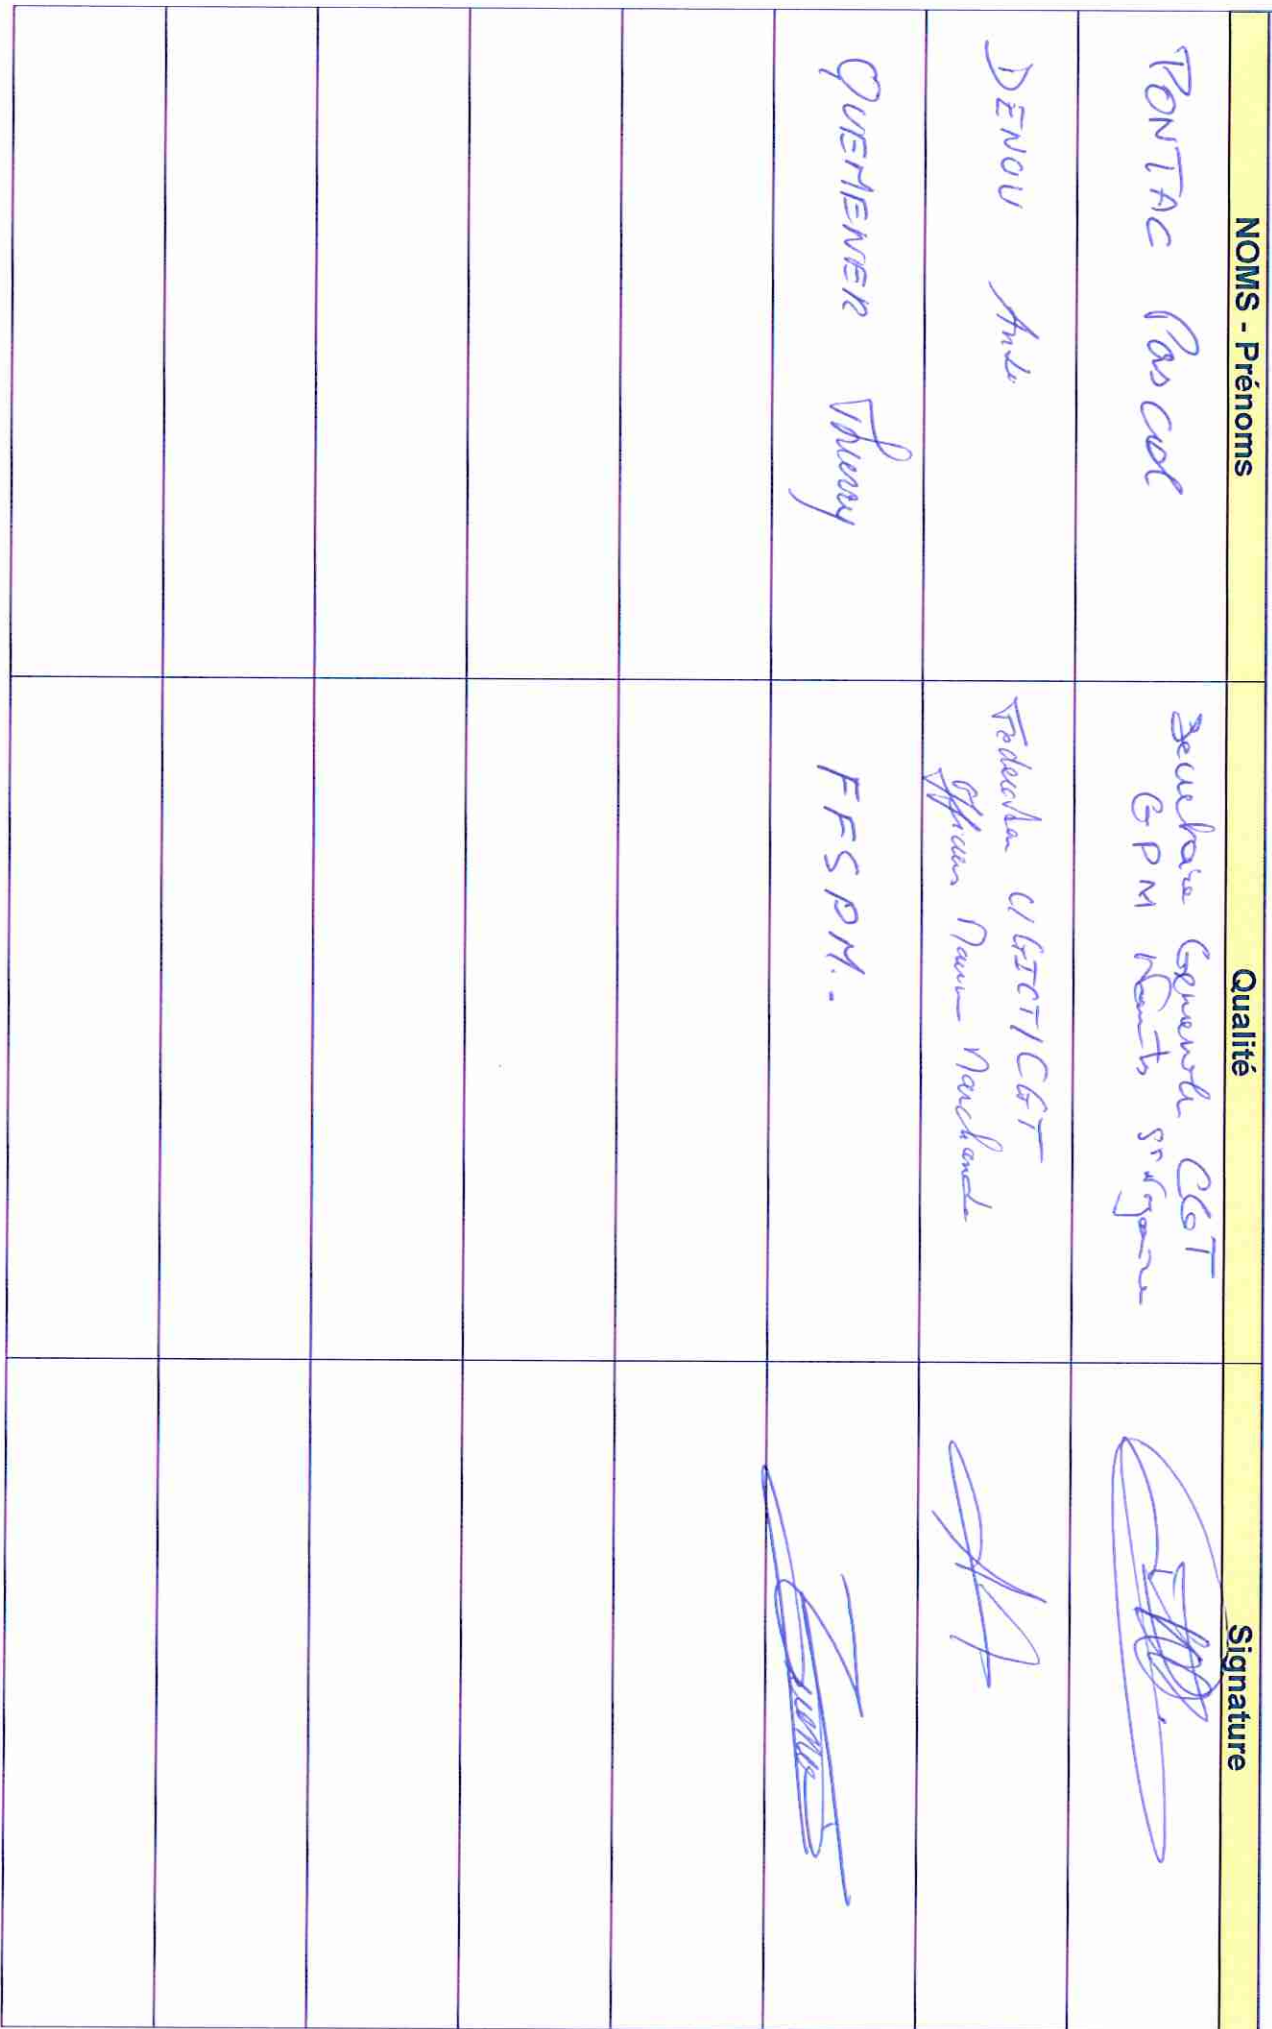 NOMS - Prénoms Qualité Signature
PONTAC Pascal
Secrétaire Générale CGT
GPM Nantes St Nazaire
DENOU
Fédération UGICT/CGT
Officiers Marine Marchande
QUEMENER Thierry
FFSPM.-